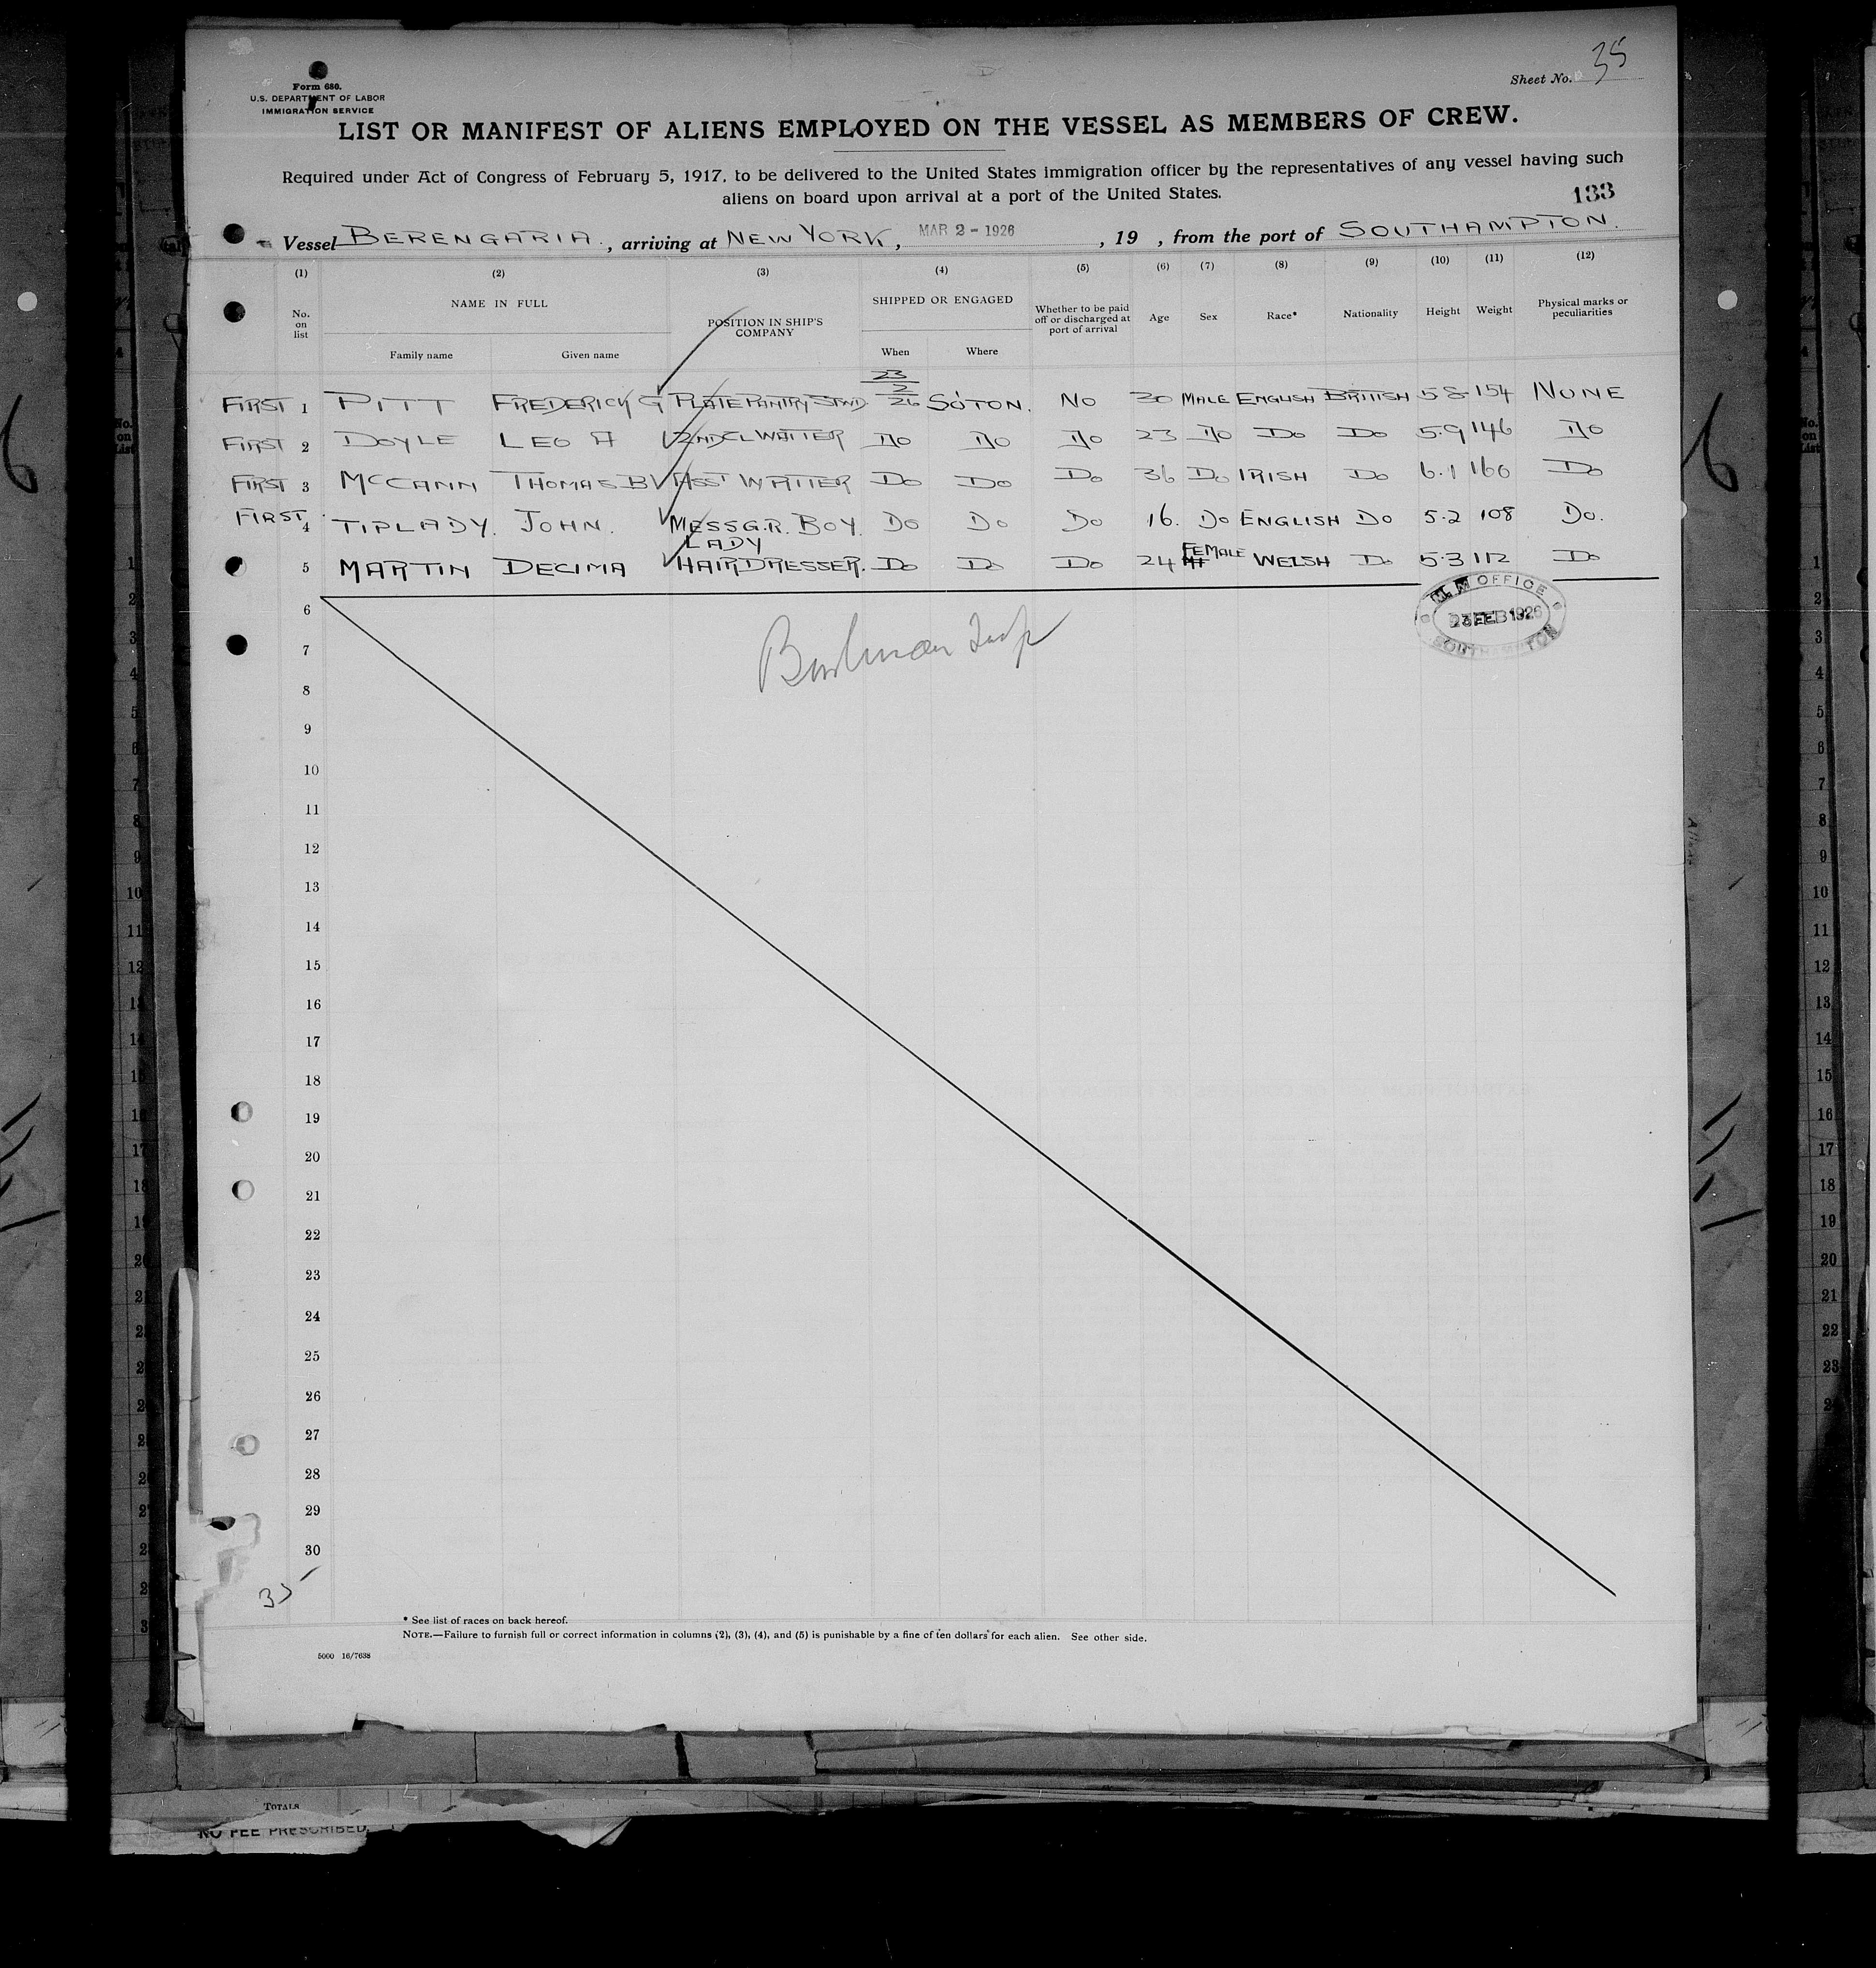 Sheet No. 35
Form 680.
U.S. DEPARTMENT OF LABOR
IMMIGRATION SERVICE
LIST OR MANIFEST OF ALIENS EMPLOYED ON THE VESSEL AS MEMBERS OF CREW.
Required under Act of Congress of February 5, 1917, to be delivered to the United States immigration officer by the representatives of any vessel having such
aliens on board upon arrival at a port of the United States.
133
Vessel BERENGARIA, arriving at NEW YORK, MAR 2 - 1926, 19 , from the port of SOUTHAMPTON.
(1) (2) (3) (4) (5) (6) (7) (8) (9) (10) (11) (12)
No. on list NAME IN FULL POSITION IN SHIP'S COMPANY SHIPPED OR ENGAGED Whether to be paid off or discharged at port of arrival Age Sex Race* Nationality Height Weight Physical marks or peculiarities
Family name Given name When Where
FIRST 1 PITT FREDERICK G PLATE PANTRY STWD 23/2/26 SO'TON. NO 30 MALE ENGLISH BRITISH 5·8 154 NONE
FIRST 2 DOYLE LEO A 2ND CL WAITER DO DO DO 23 DO DO DO 5·9 146 DO
FIRST 3 MCCANN THOMAS B ASST WAITER DO DO DO 36 DO IRISH DO 6·1 160 DO
FIRST 4 TIPLADY. JOHN. MESSGR. BOY. DO DO DO 16. DO ENGLISH DO 5·2 108 DO.
5 MARTIN DECIMA LADY HAIRDRESSER. DO DO DO 24 FEMALE WELSH DO 5·3 112 DO
OFFICE
23 FEB 1926
SOUTHAMPTON
6
7
8
9
10
11
12
13
14
15
16
17
18
19
20
21
22
23
24
25
26
27
28
29
30
35
* See list of races on back hereof.
NOTE.—Failure to furnish full or correct information in columns (2), (3), (4), and (5) is punishable by a fine of ten dollars for each alien. See other side.
5000 16/7638
TOTALS
NO FEE PRESCRIBED.